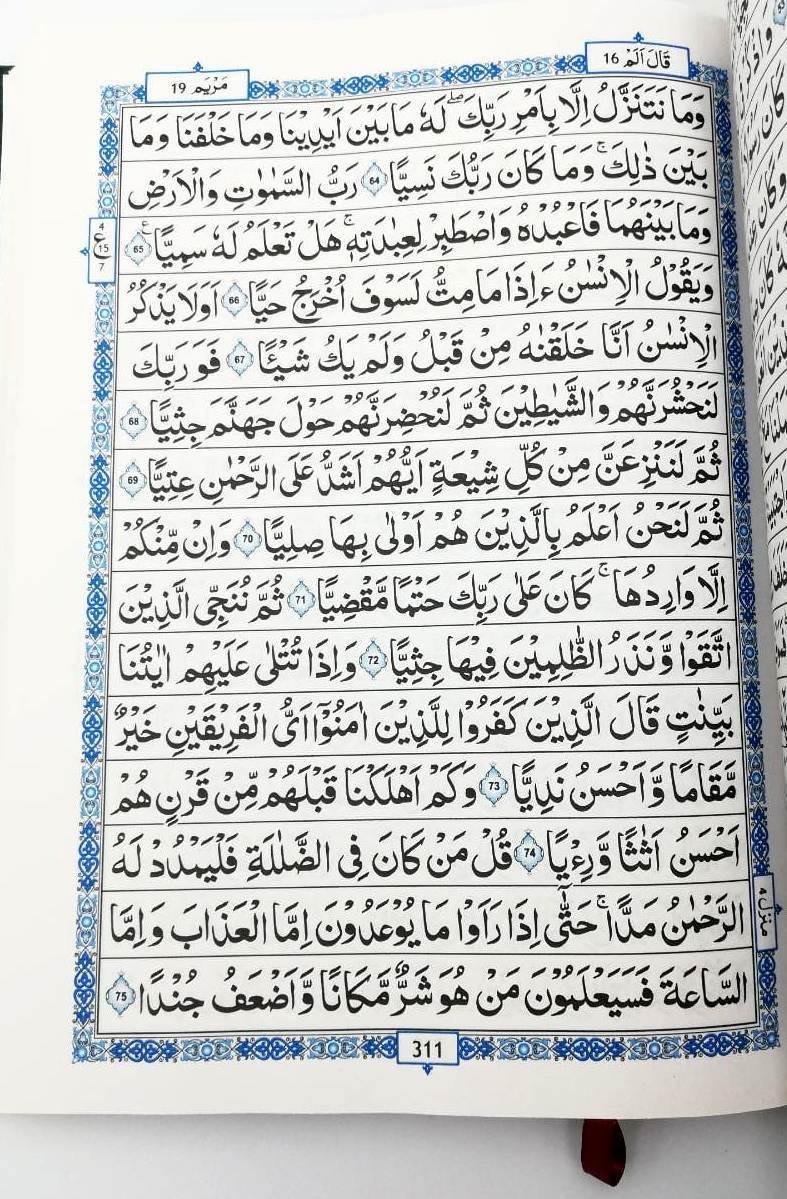 مَرْيَم 19
قَالَ اَلَمْ 16
وَمَا نَتَنَزَّلُ اِلَّا بِاَمْرِ رَبِّكَ ۖ لَهٗ مَا بَيْنَ اَيْدِيْنَا وَمَا خَلْفَنَا وَمَا
بَيْنَ ذٰلِكَ ۚ وَمَا كَانَ رَبُّكَ نَسِيًّا 64 رَبُّ السَّمٰوٰتِ وَالْاَرْضِ
وَمَا بَيْنَهُمَا فَاعْبُدْهُ وَاصْطَبِرْ لِعِبَادَتِهٖ ۚ هَلْ تَعْلَمُ لَهٗ سَمِيًّا ع 65
4
ع
15
7
وَيَقُوْلُ الْاِنْسٰنُ ءَاِذَا مَا مِتُّ لَسَوْفَ اُخْرَجُ حَيًّا 66 اَوَلَا يَذْكُرُ
الْاِنْسٰنُ اَنَّا خَلَقْنٰهُ مِنْ قَبْلُ وَلَمْ يَكُ شَيْـًٔا 67 فَوَرَبِّكَ
لَنَحْشُرَنَّهُمْ وَالشَّيٰطِيْنَ ثُمَّ لَنُحْضِرَنَّهُمْ حَوْلَ جَهَنَّمَ جِثِيًّا 68
ثُمَّ لَنَنْزِعَنَّ مِنْ كُلِّ شِيْعَةٍ اَيُّهُمْ اَشَدُّ عَلَى الرَّحْمٰنِ عِتِيًّا 69
ثُمَّ لَنَحْنُ اَعْلَمُ بِالَّذِيْنَ هُمْ اَوْلٰى بِهَا صِلِيًّا 70 وَاِنْ مِّنْكُمْ
اِلَّا وَارِدُهَا ۚ كَانَ عَلٰى رَبِّكَ حَتْمًا مَّقْضِيًّا 71 ثُمَّ نُنَجِّى الَّذِيْنَ
اتَّقَوْا وَّنَذَرُ الظّٰلِمِيْنَ فِيْهَا جِثِيًّا 72 وَاِذَا تُتْلٰى عَلَيْهِمْ اٰيٰتُنَا
بَيِّنٰتٍ قَالَ الَّذِيْنَ كَفَرُوْا لِلَّذِيْنَ اٰمَنُوْٓا اَىُّ الْفَرِيْقَيْنِ خَيْرٌ
مَّقَامًا وَّاَحْسَنُ نَدِيًّا 73 وَكَمْ اَهْلَكْنَا قَبْلَهُمْ مِّنْ قَرْنٍ هُمْ
اَحْسَنُ اَثٰثًا وَّرِءْيًا 74 قُلْ مَنْ كَانَ فِى الضَّلٰلَةِ فَلْيَمْدُدْ لَهُ
الرَّحْمٰنُ مَدًّا ۚ حَتّٰٓى اِذَا رَاَوْا مَا يُوْعَدُوْنَ اِمَّا الْعَذَابَ وَاِمَّا
منزل 4
السَّاعَةَ فَسَيَعْلَمُوْنَ مَنْ هُوَ شَرٌّ مَّكَانًا وَّاَضْعَفُ جُنْدًا 75
311